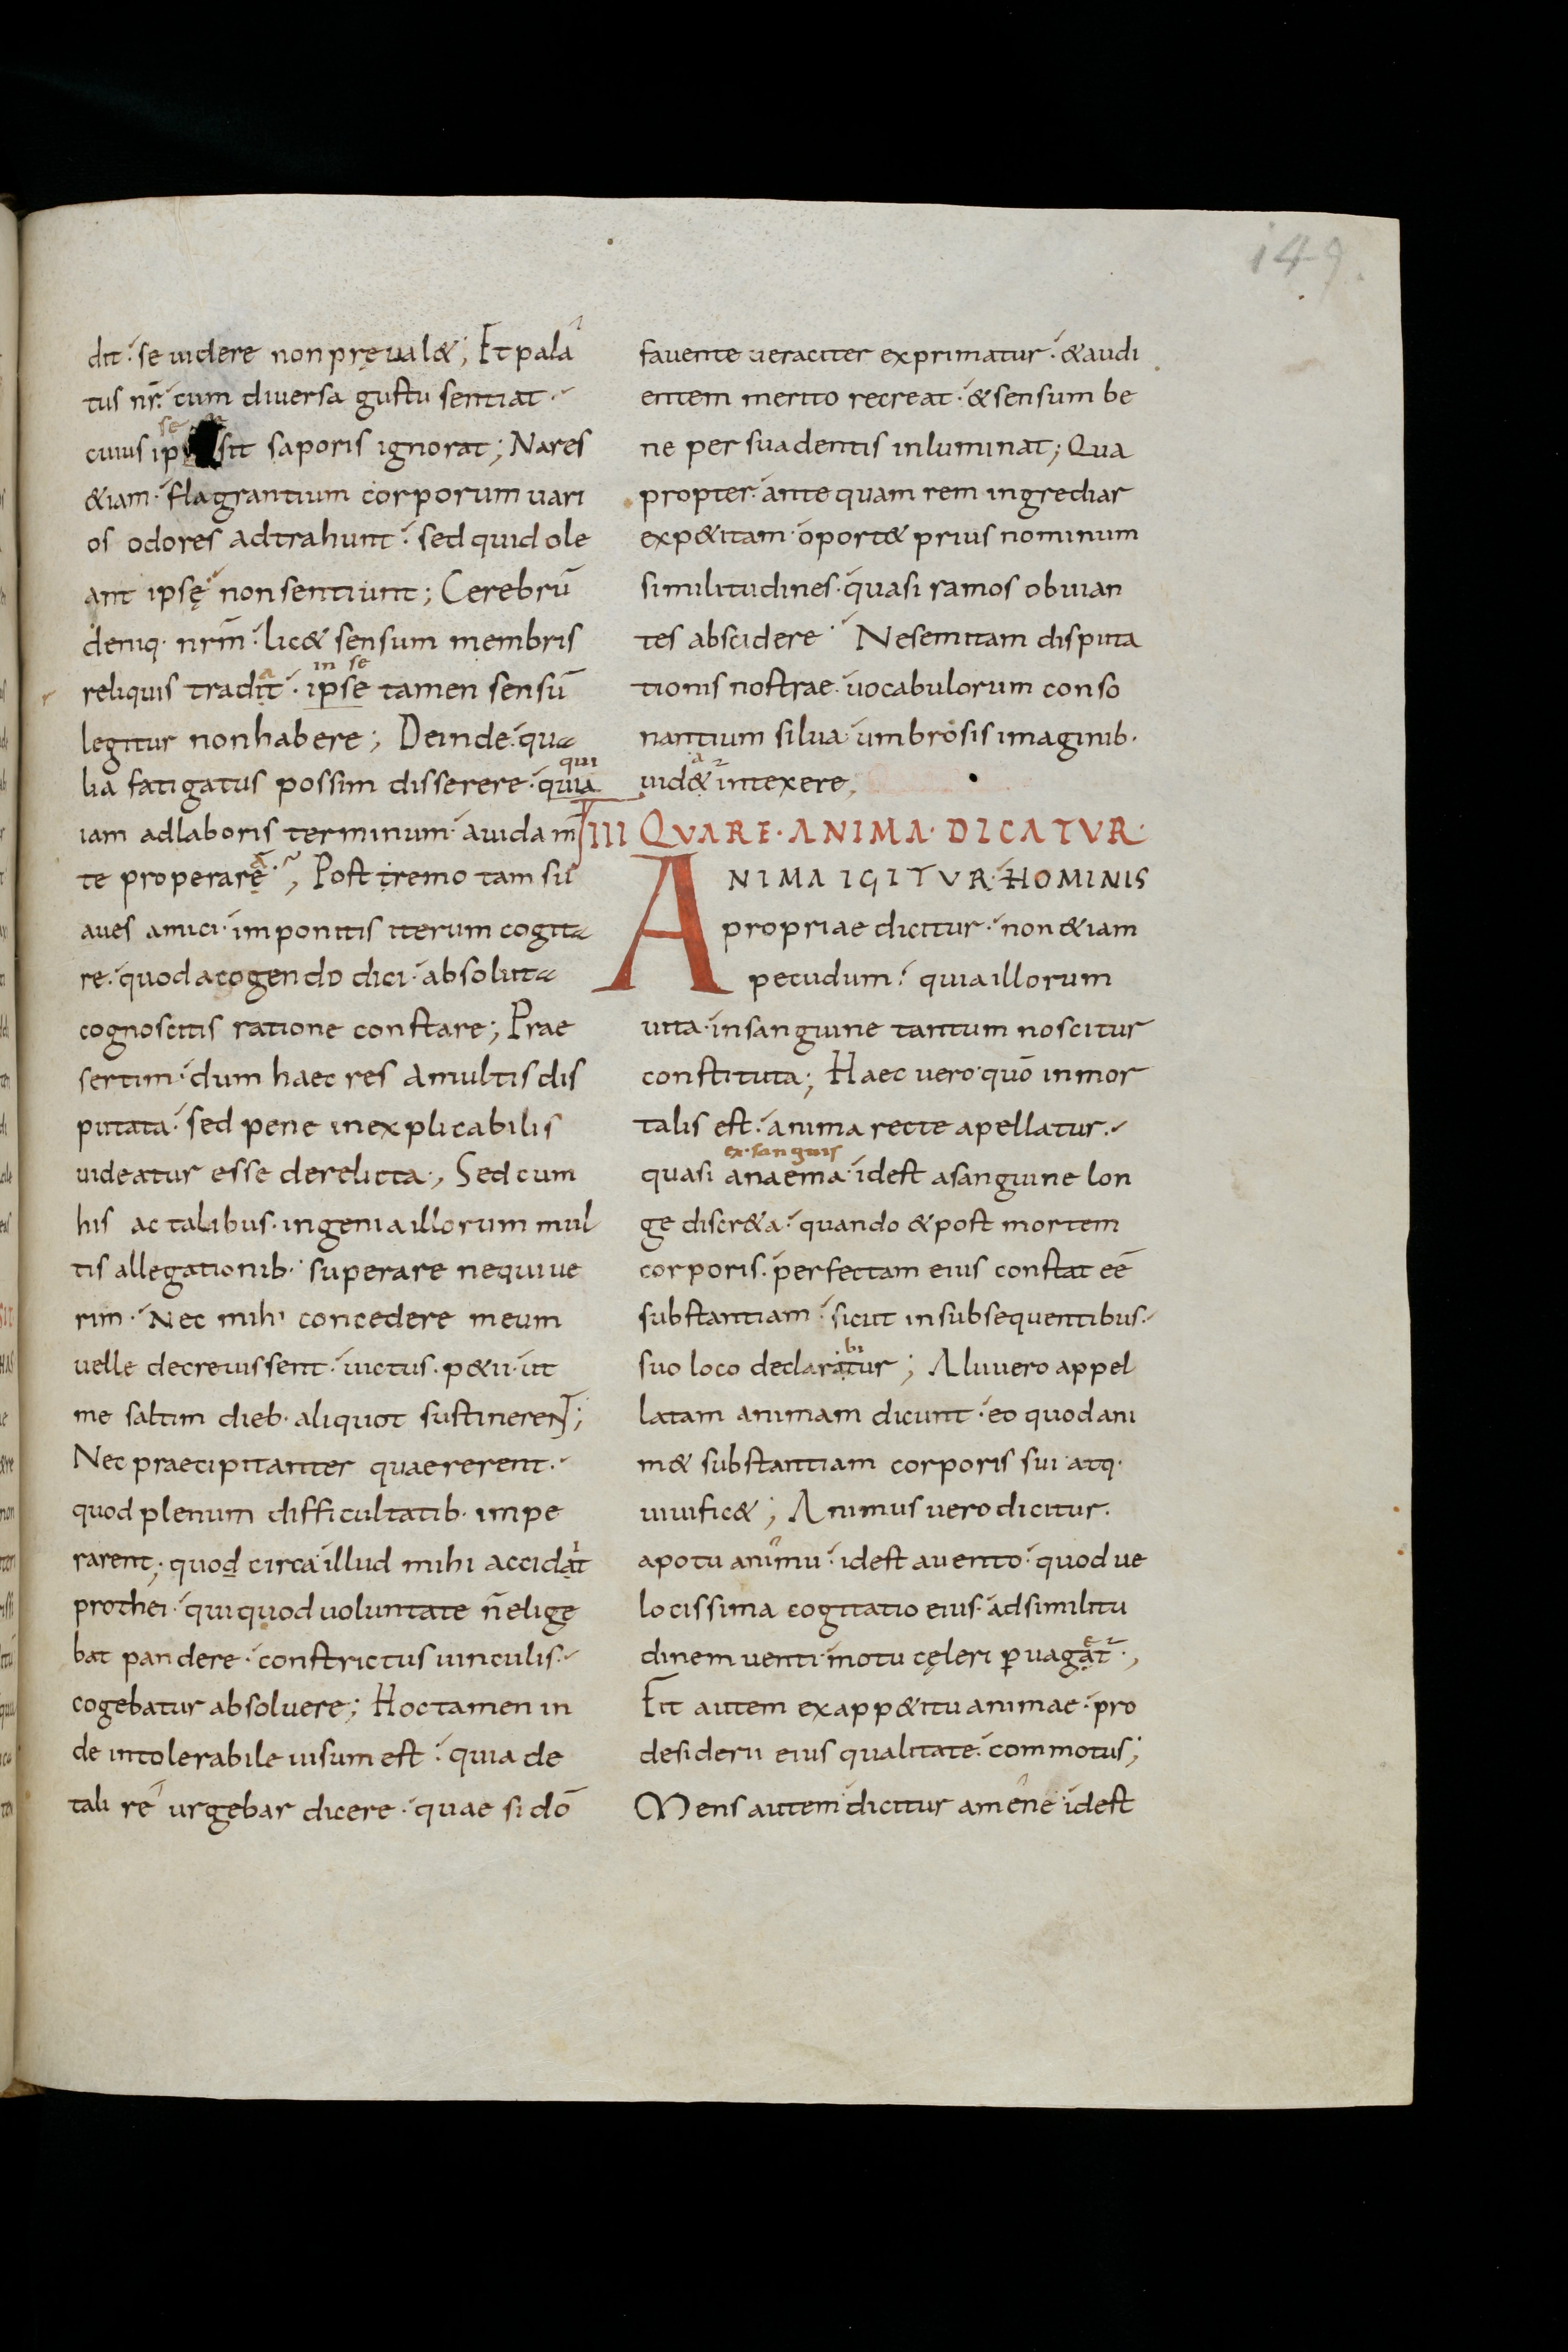 149.
dit·se uidere non pręual&; Et pala
tus nr̄·cum diuersa gustu sentiat·
se
cuius ip sit saporis ignorat; Nares
&iam·flagrantium corporum uari
os odores adtrahunt·sed quid ole
ant ipsę non sentiunt; Cerebrū
deniq· nr̄m·lic& sensum membris
in se
a
reliquis tradit·ipse tamen sensū
legitur non habere; Deinde·qua
qui
lia fatigatus possim disserere·quia
iam adlaboris terminum·auidam
te properarę; Postremo tam su
aues amici·imponitis iterum cogita
re·quod acogendo dici·absoluta
cognoscitis ratione constare; Prae
sertim·dum haec res amultis dis
putata·sed pene inexplicabilis
uideatur esse derelicta; Sed cum
his ac talibus·ingenia illorum mul
tis allegationib·superare nequiue
rim·Nec mihi concedere meum
uelle decreuissent·uictus·p&ii·ut
me saltim dieb·aliquot sustinerent;
Nec praecipitanter quaererent·
quod plenum difficultatib·impe
i
rarent; quod circa illud mihi accidat
prothei·qui quod uoluntate n̄ eligę
bat pandere·constrictus uinculis·
cogebatur absoluere; Hoc tamen in
de intolerabile uisum est·quia de
tali re urgebar dicere·quae si dō
fauente ueraciter exprimatur·&audi
entem merito recreat·&sensum be
ne per suadentis inluminat; Qua
propter·antequam rem ingrediar
exp&itam·oport& prius nominum
similitudines·quasi ramos obuian
tes abscidere· Nesemitam disputa
tionis nostrae·uocabulorum conso
nantium silua·umbrosis imaginib·
a
uid& intexere;
III QVARE·ANIMA·DICATVR·
ANIMA IGITVR·HOMINIS
propriae dicitur·non &iam
pecudum·quia illorum
uita·insanguine tantum noscitur
constituta; Haec uero quō inmor
talis est·anima recte apellatur·
ex·sanguis
quasi anaema·idest asanguine lon
ge discr&a·quando &post mortem
corporis·perfectam eius constat eē
substantiam·sicut insubsequentibus·
bi
suo loco declaratur; Alii uero appel
latam animam dicunt·eo quod ani
m& substantiam corporis sui atq·
uiuific&; Animus uero dicitur·
apotu animu·idest auento·quod ue
locissima cogitatio eius·adsimilitu
e
dinem uenti·motu cęleri ꝑuagat·,
Fit autem exapp&itu animae·pro
desiderii eius qualitate·commotus;
Mens autem dicitur amene·idest